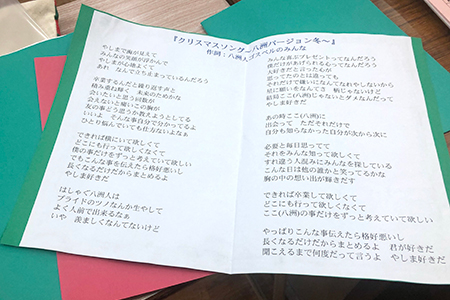 『クリスマスソング~八洲バージョン冬~』
作詞:八洲人ゴスペルのみんな
やしまで海が見えて
みんなの笑顔が浮かんで
やしまは心地よくて
あれ なんで立ち止まっているんだろう
卒業するんだと繰り返す声と
積み重ね輝く 未来のためかな
会えないと痛いこの胸が
友の事どう思うか教えようとしてる
いいよ そんな事自分で分かってるよ
ひとり悩んでいても仕方ないよなぁ
できれば横にいて欲しくて
どこにも行って欲しくなくて
僕の事だけをずっと考えていて欲しい
でもこんな事を伝えたら格好悪いし
長くなるだけだからまとめるよ
やしま好きだ
はしゃぐ八洲人は
プライドのツノなんか生やして
よく人前で出来るなぁ
いや 羨ましくなんてないけど
みんな喜ぶプレゼントってなんだろう
僕だけがあげられるものってなんだろう
大好きだと言った心が
思ってたのとは違っても
それだけで嫌いになんてなれやしないから
星に願いをなんてさ 柄じゃないけど
結局ここ(八洲)じゃないとダメなんだって
やしま好きだ
あの時ここ(八洲)に
出会って ただそれだけで
自分も知らなかった自分が次から次に
必要と毎日思ってて
それをみんな知って欲しくて
すれ違う人混みにみんなを探している
こんな日は他の誰かと笑ってるかな
胸の中の想い出が輝きだす
できれば卒業して欲しくて
どこにも行って欲しくなくて
ここ(八洲)の事だけをずっと考えていて欲しい
やっぱりこんな事伝えたら格好悪いし
長くなるだけだからまとめるよ 君が好きだ
聞こえるまで何度だって言うよ やしま好きだ